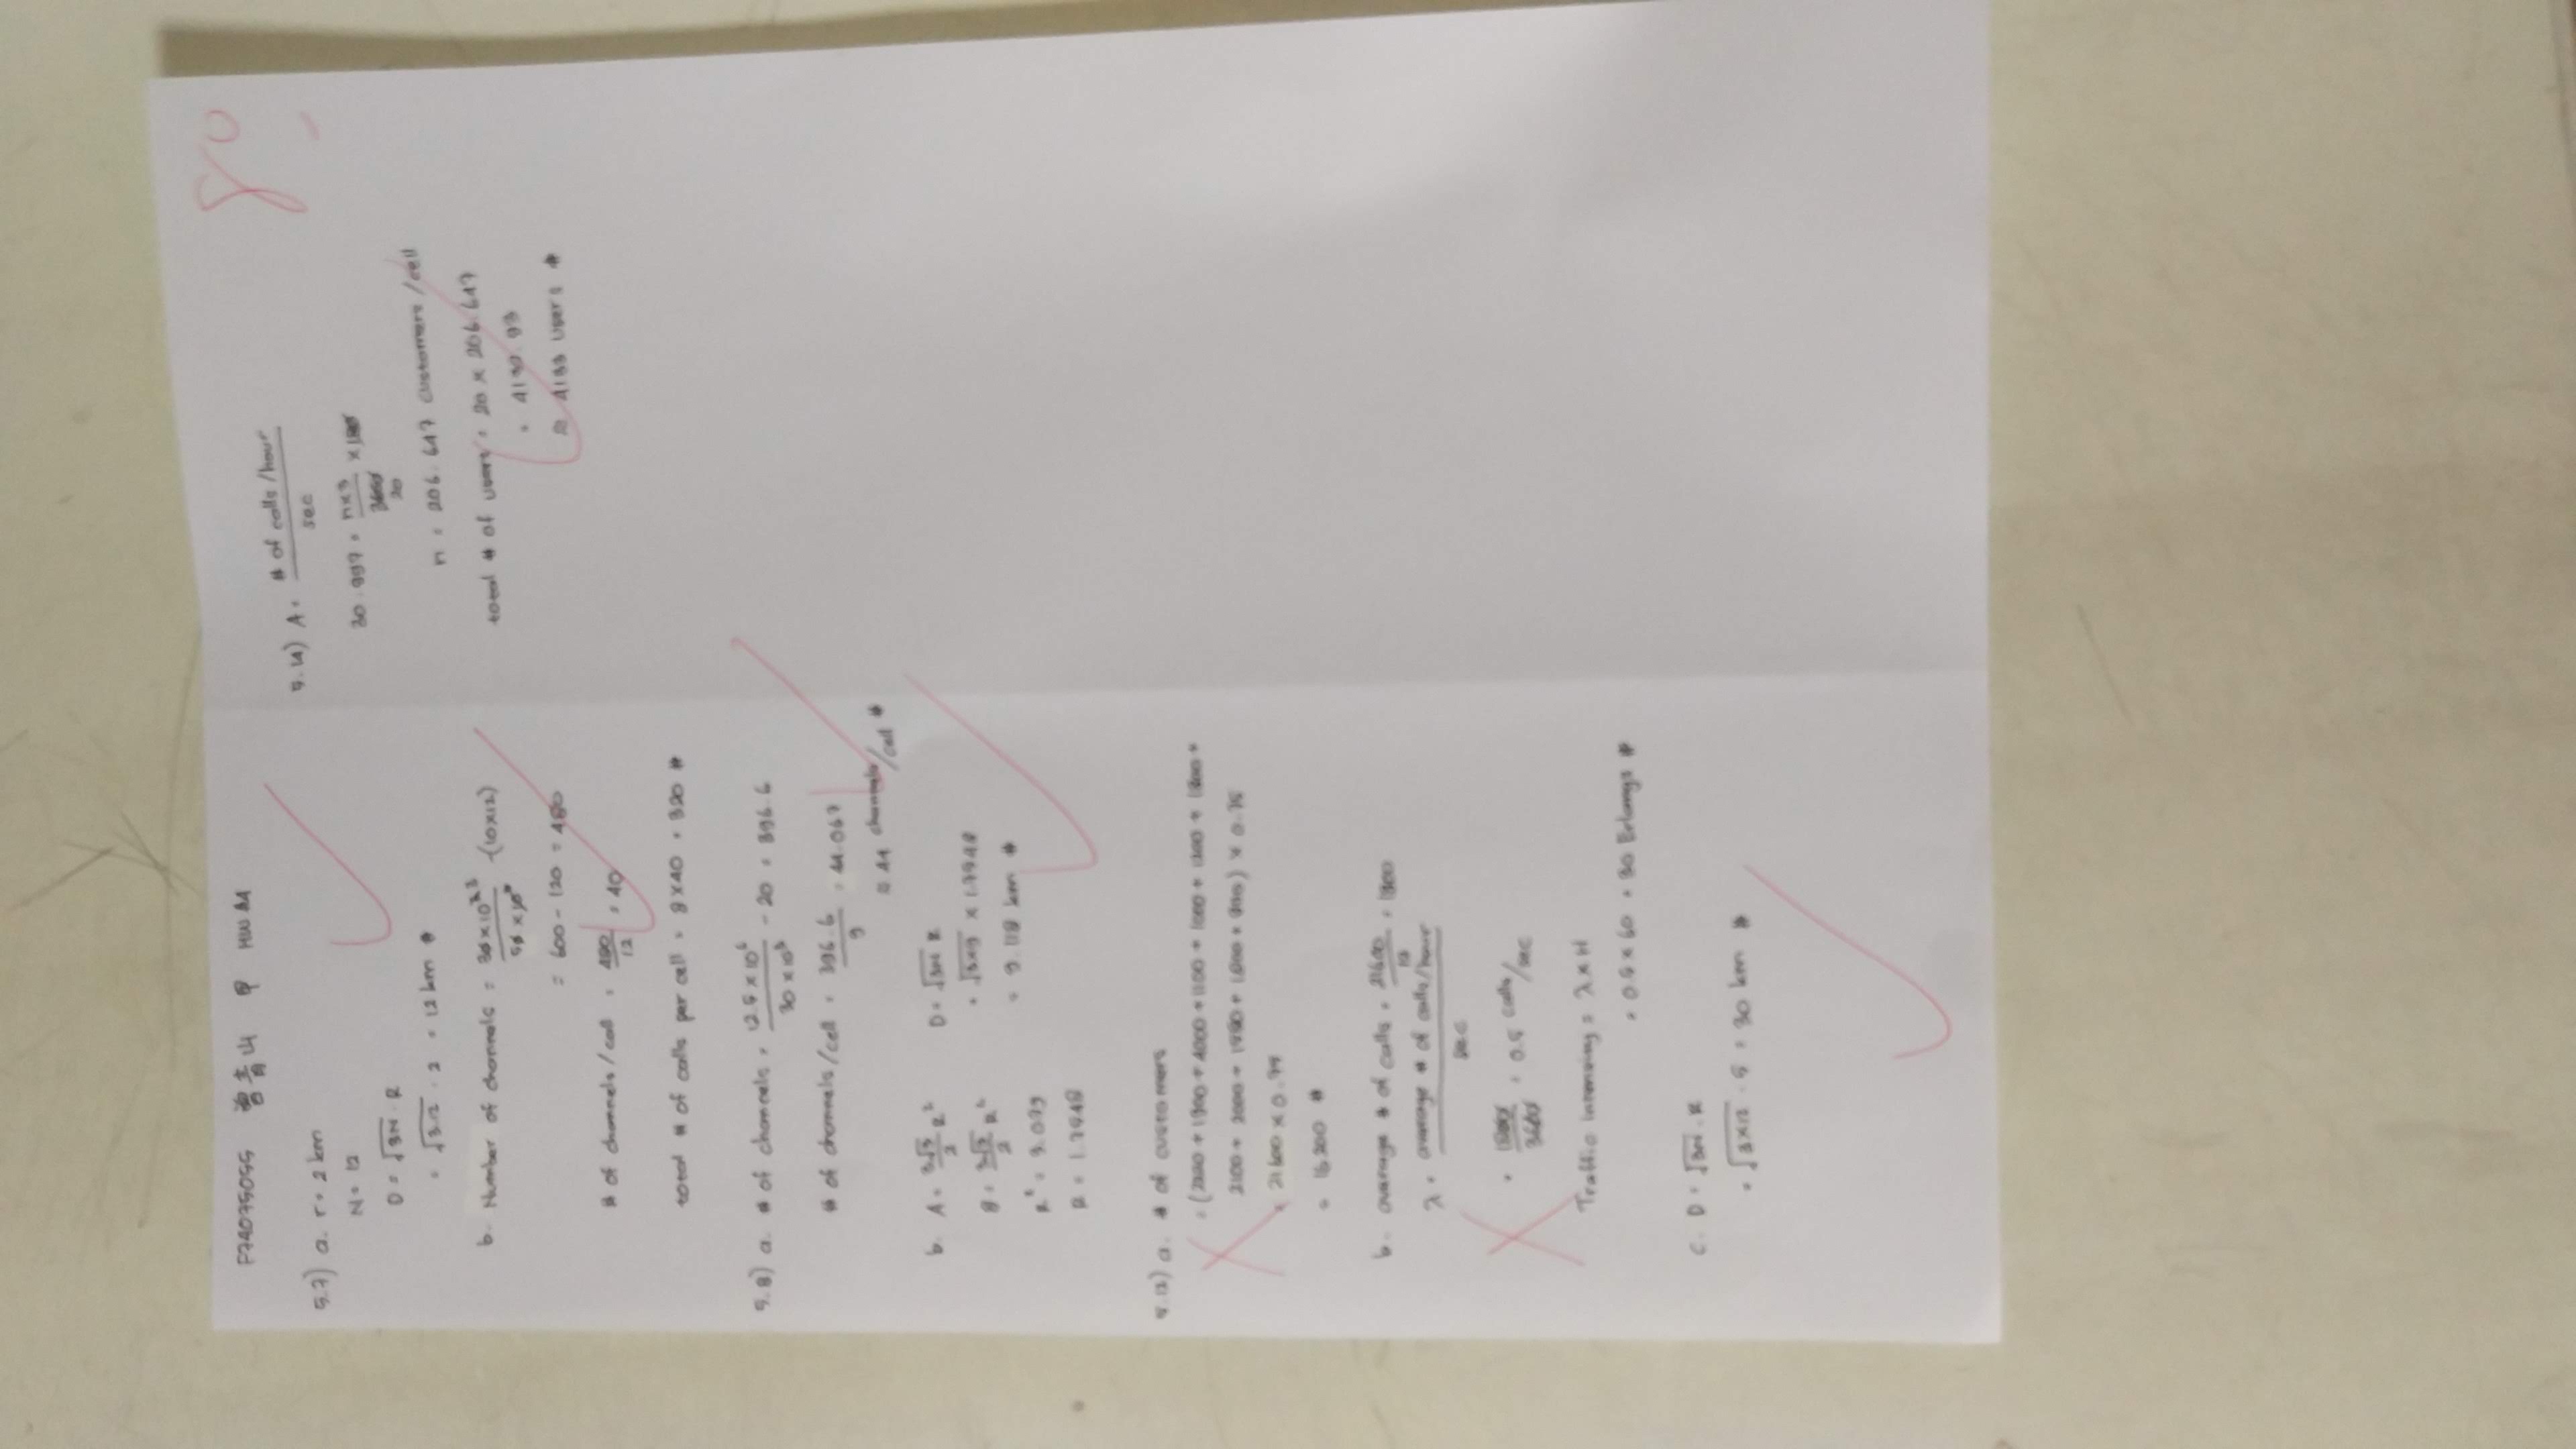 F74075055 曾 肯 山 @ HW #4
5.7) a. r = 2 km
N = 12
D = √3N . R
= √3.12 . 2 = 12 km #
b. Number of channels = 30 x 10³ / 50 - (10x12)
= 600 - 120 = 480
# of channels / cell = 480 / 12 = 40
total # of calls per cell = 8 x 40 = 320 #
5.8) a. # of channels = 12.5 x 10⁶ / 30 x 10³ - 20 = 396.6
# of channels / cell = 396.6 / 9 = 44.067
≈ 44 channels / cell #
b. A = 3√3 / 2 R²
8 = 3√3 / 2 R²
R² = 3.079
R = 1.7548
D = √3N R
= √3x9 x 1.7548
= 9.118 km #
5.12) a. # of customers
2100 + 2000 +
= 21600 x 0.75
= 16200 #
b. average # of calls = 21600 / 12 = 1800
λ = average # of calls/hour / sec
= 1800 / 3600 = 0.5 calls / sec
Traffic intensity = λ x H
= 0.5 x 60 = 30 Erlangs #
c. D = √3N . R
= √3x12 . 5 = 30 km #
5.14) A = # of calls / hour / sec
30.997 = n x 3 / 3600 x 180
20
n = 206.647 customers / cell
total # of users = 20 x 206.647
= 4132.93
≈ 4133 users #
80